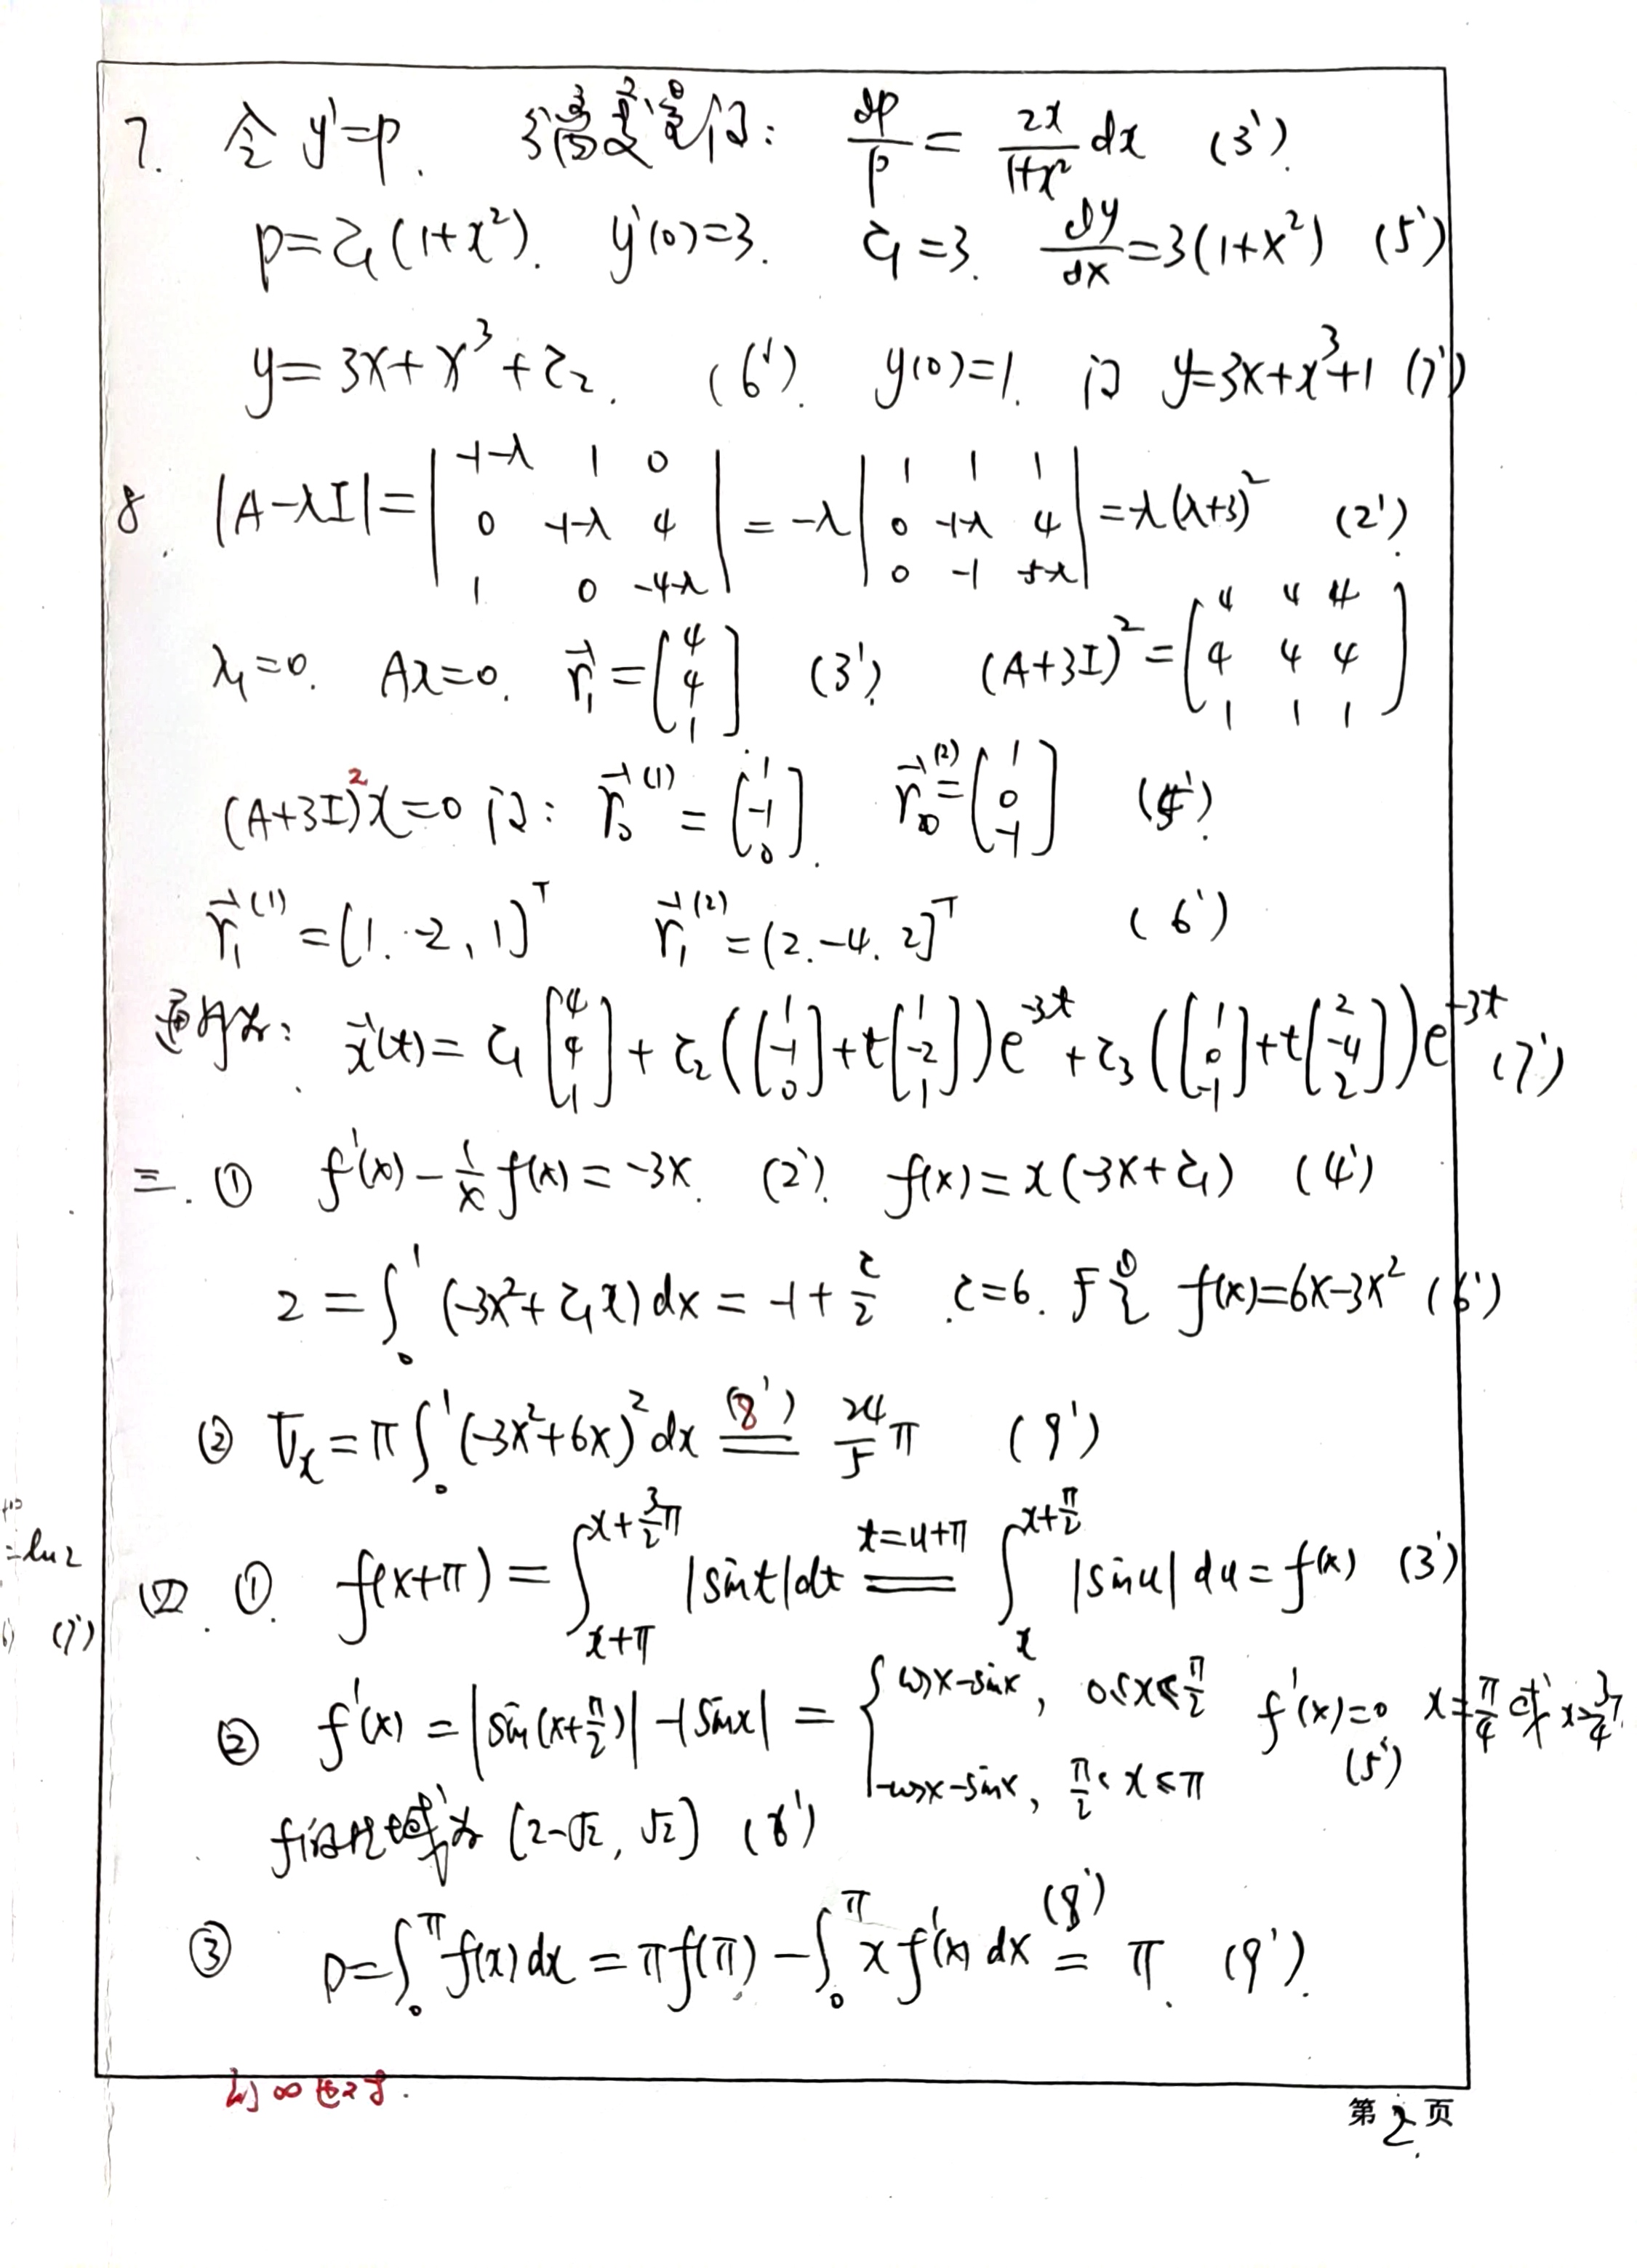 7. 令 y'=p. 分离变量得: dp/p = 2x/(1+x²) dx (3').
p=C₁(1+x²). y'(0)=3. C₁=3. dy/dx=3(1+x²) (5')
y=3x+x³+C₂. (6'). y(0)=1. 得 y=3x+x³+1 (7')
8. |A-λI|= | -1-λ 1 0 ; 0 -1-λ 4 ; 1 0 -4-λ | = -λ | 1 1 1 ; 0 -1-λ 4 ; 0 -1 -5-λ | = -λ(λ+3)² (2').
λ₁=0. Ax=0. r⃗₁=[4 4 1] (3'). (A+3I)²=[4 4 4 ; 4 4 4 ; 1 1 1]
(A+3I)²x=0 得: r⃗₀⁽¹⁾=[1 -1 0]. r⃗₀⁽²⁾=[1 0 -1]
r⃗₁⁽¹⁾=[1. -2, 1]ᵀ r⃗₁⁽²⁾=(2. -4. 2]ᵀ (6')
通解为: x⃗(t)= C₁[4 4 1] + C₂([1 -1 0]+t[1 -2 1])e⁻³ᵗ + C₃([1 0 -1]+t[2 -4 2])e⁻³ᵗ (7')
三. ① f'(x) - 1/x f(x) = -3x. (2'). f(x)=x(-3x+C₁) (4')
2 = ∫₀¹ (-3x²+C₁x)dx = -1+ C/2 . C=6. f(x)=6x-3x² (6')
② Vₓ = π∫₀¹ (-3x²+6x)²dx (8') = 24/5 π (9')
=ln2
四. ①. f(x+π) = ∫_{x+π}^{x+3/2π} |sint|dt (t=u+π) = ∫_x^{x+π/2} |sinu|du = f(x) (3')
(7')
② f'(x) = |sin(x+π/2)| - |sinx| = { cosx-sinx, 0≤x≤π/2 ; -cosx-sinx, π/2<x≤π f'(x)=0 x=π/4 或 x=3/4π (5')
f的值域为 [2-√2, √2]
③ D=∫₀^π f(x)dx = πf(π) - ∫₀^π x f'(x) dx (8') = π. (9').
第 2 页